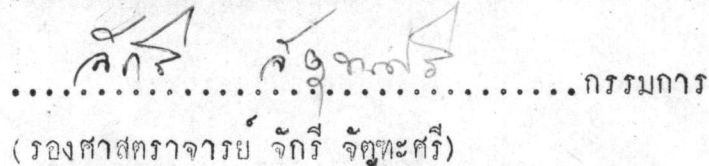 จักรี จัตุฑะศรี ........................................ กรรมการ
(รองศาสตราจารย์ จักรี จัตุฑะศรี)